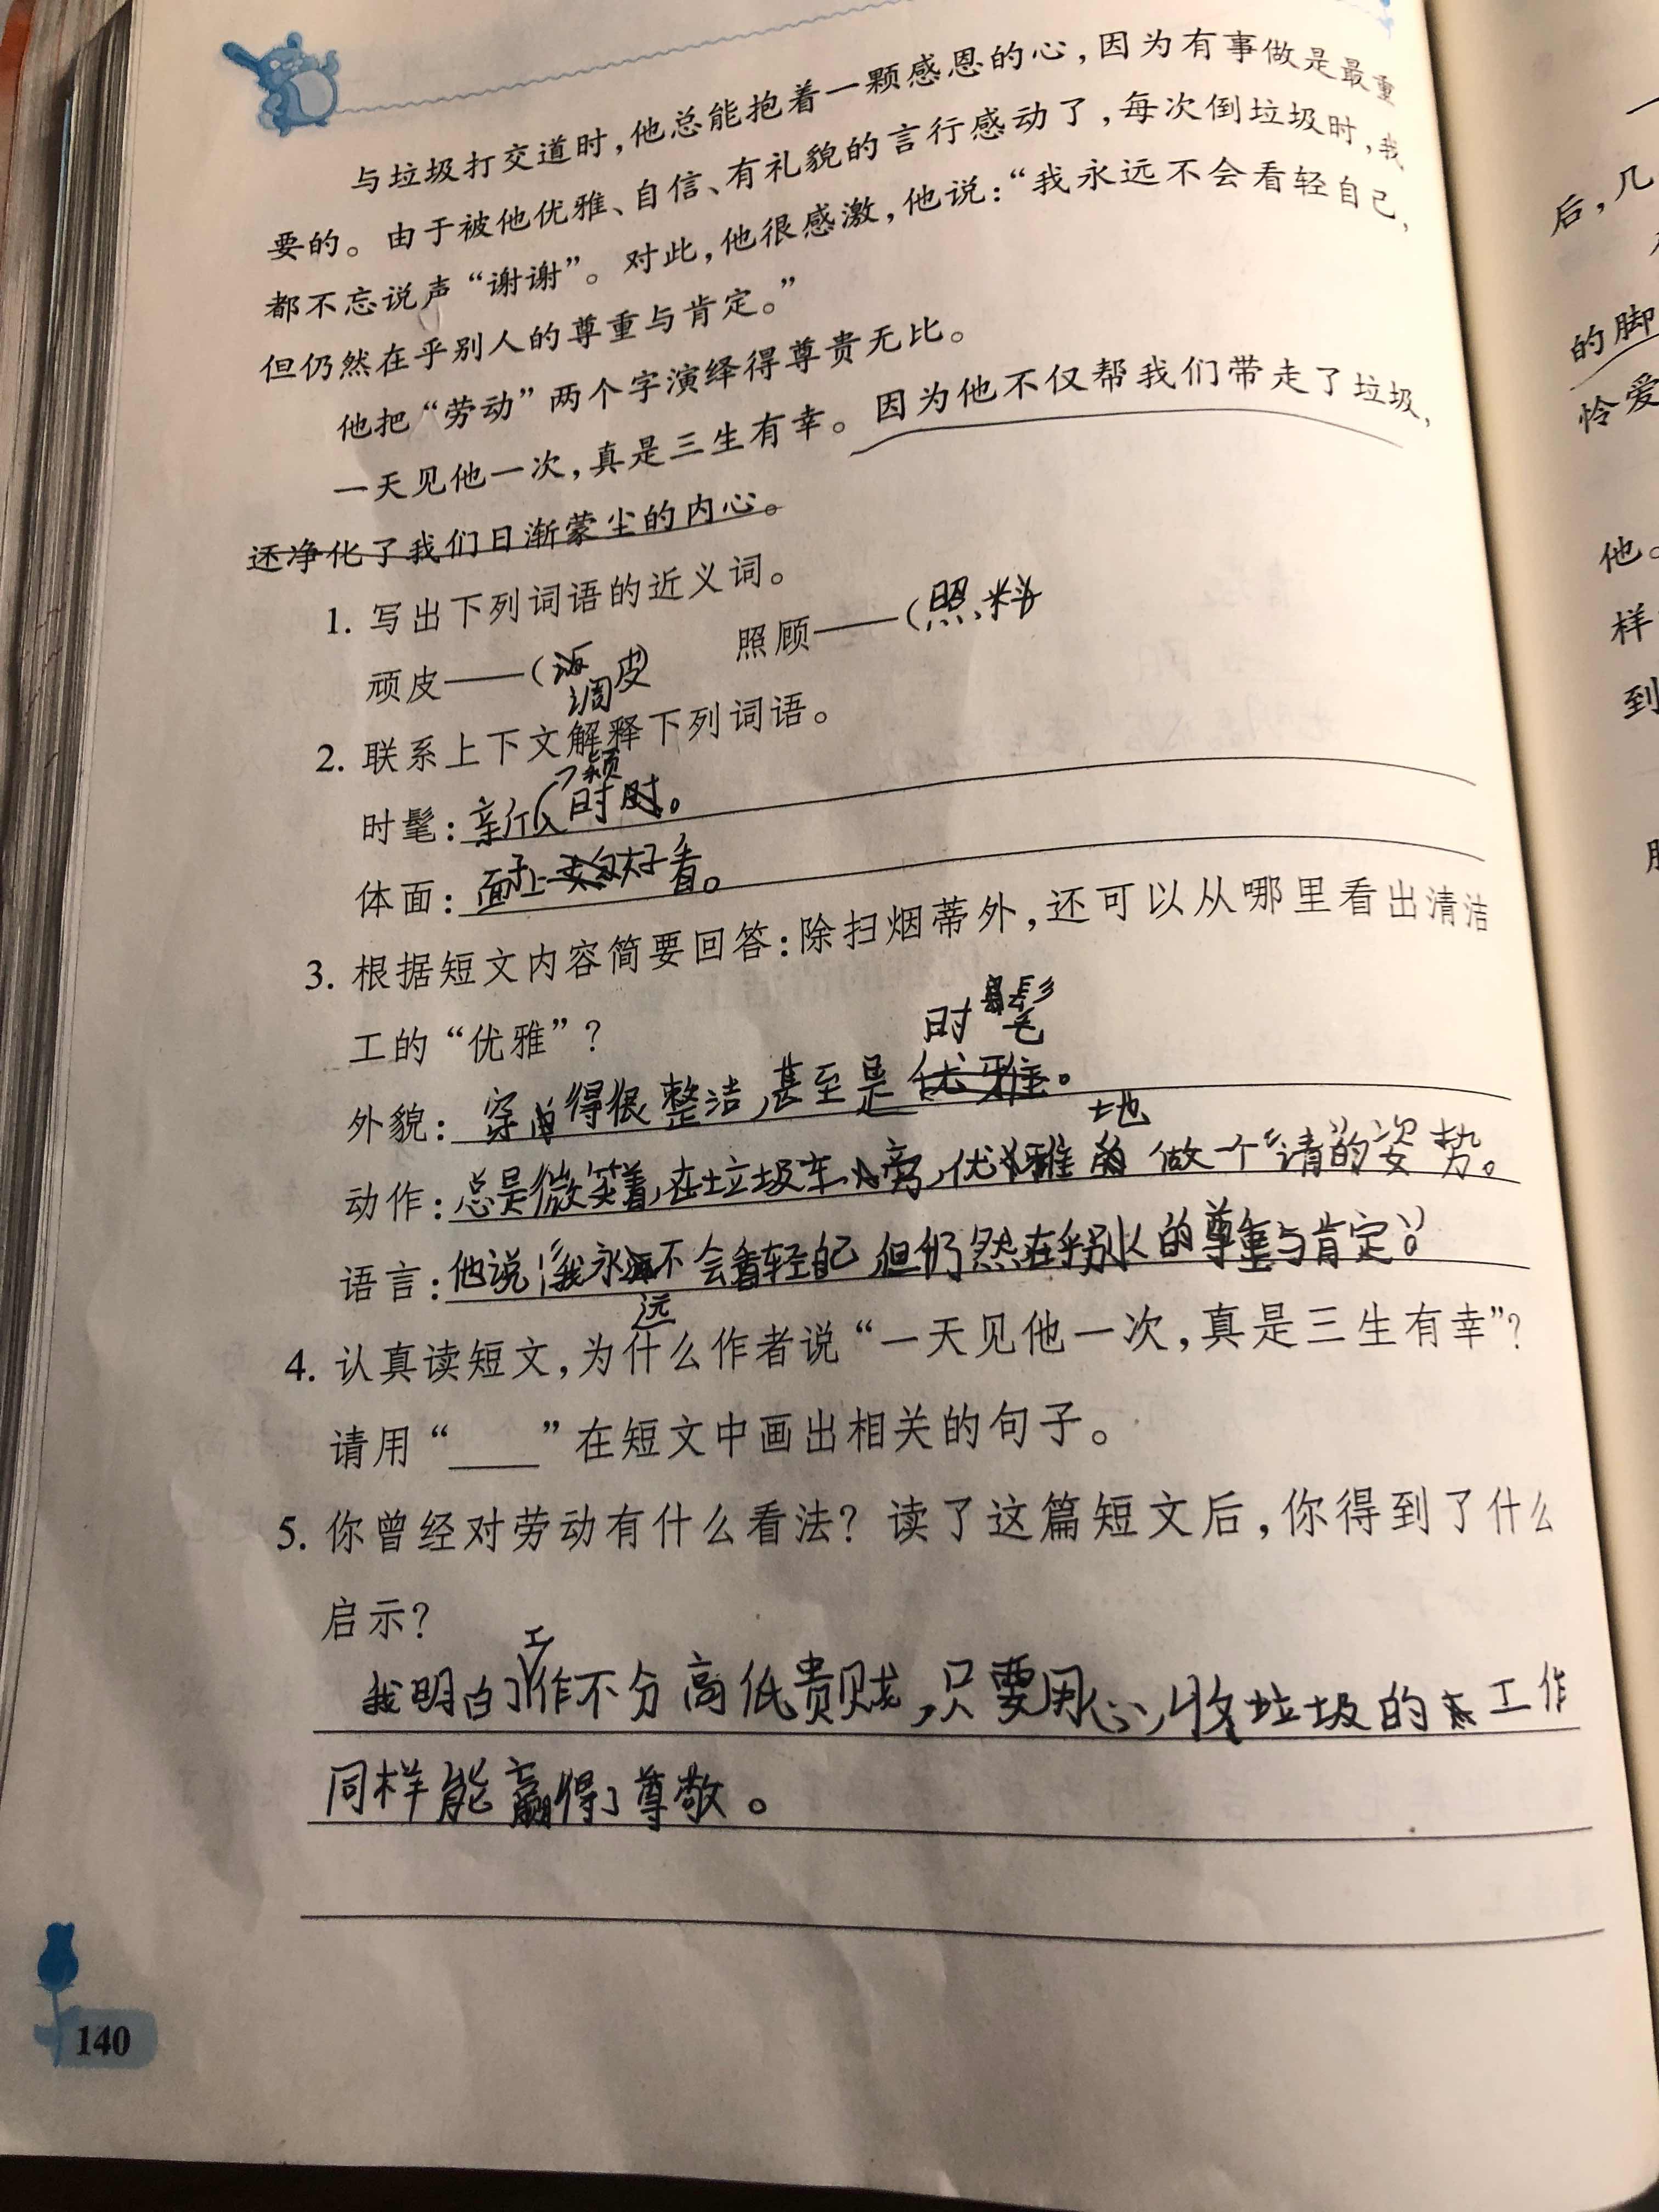 与垃圾打交道时,他总能抱着一颗感恩的心,因为有事做是最重
要的。由于被他优雅、自信、有礼貌的言行感动了,每次倒垃圾时,我
都不忘说声“谢谢”。对此,他很感激,他说:“我永远不会看轻自己,
但仍然在乎别人的尊重与肯定。”
他把“劳动”两个字演绎得尊贵无比。
一天见他一次,真是三生有幸。因为他不仅帮我们带走了垃圾,
还净化了我们日渐蒙尘的内心。
1. 写出下列词语的近义词。
顽皮——(调皮) 照顾——(照料
2. 联系上下文解释下列词语。
时髦:新颖时
体面:面子上好看。
3. 根据短文内容简要回答:除扫烟蒂外,还可以从哪里看出清洁
工的“优雅”?
时髦
外貌:穿得很整洁,甚至是优雅。
动作:总是微笑着,在垃圾车旁,优雅地做一个“请”的姿势。
语言:他说:“我永远不会看轻自己,但仍然在乎别人的尊重与肯定。”
4. 认真读短文,为什么作者说“一天见他一次,真是三生有幸”?
请用“____”在短文中画出相关的句子。
5. 你曾经对劳动有什么看法?读了这篇短文后,你得到了什么
启示?
我明白了工作不分高低贵贱,只要用心,收垃圾的工作
同样能赢得了尊敬。
140
一
后,几
的脚
怜爱
他。
样
到